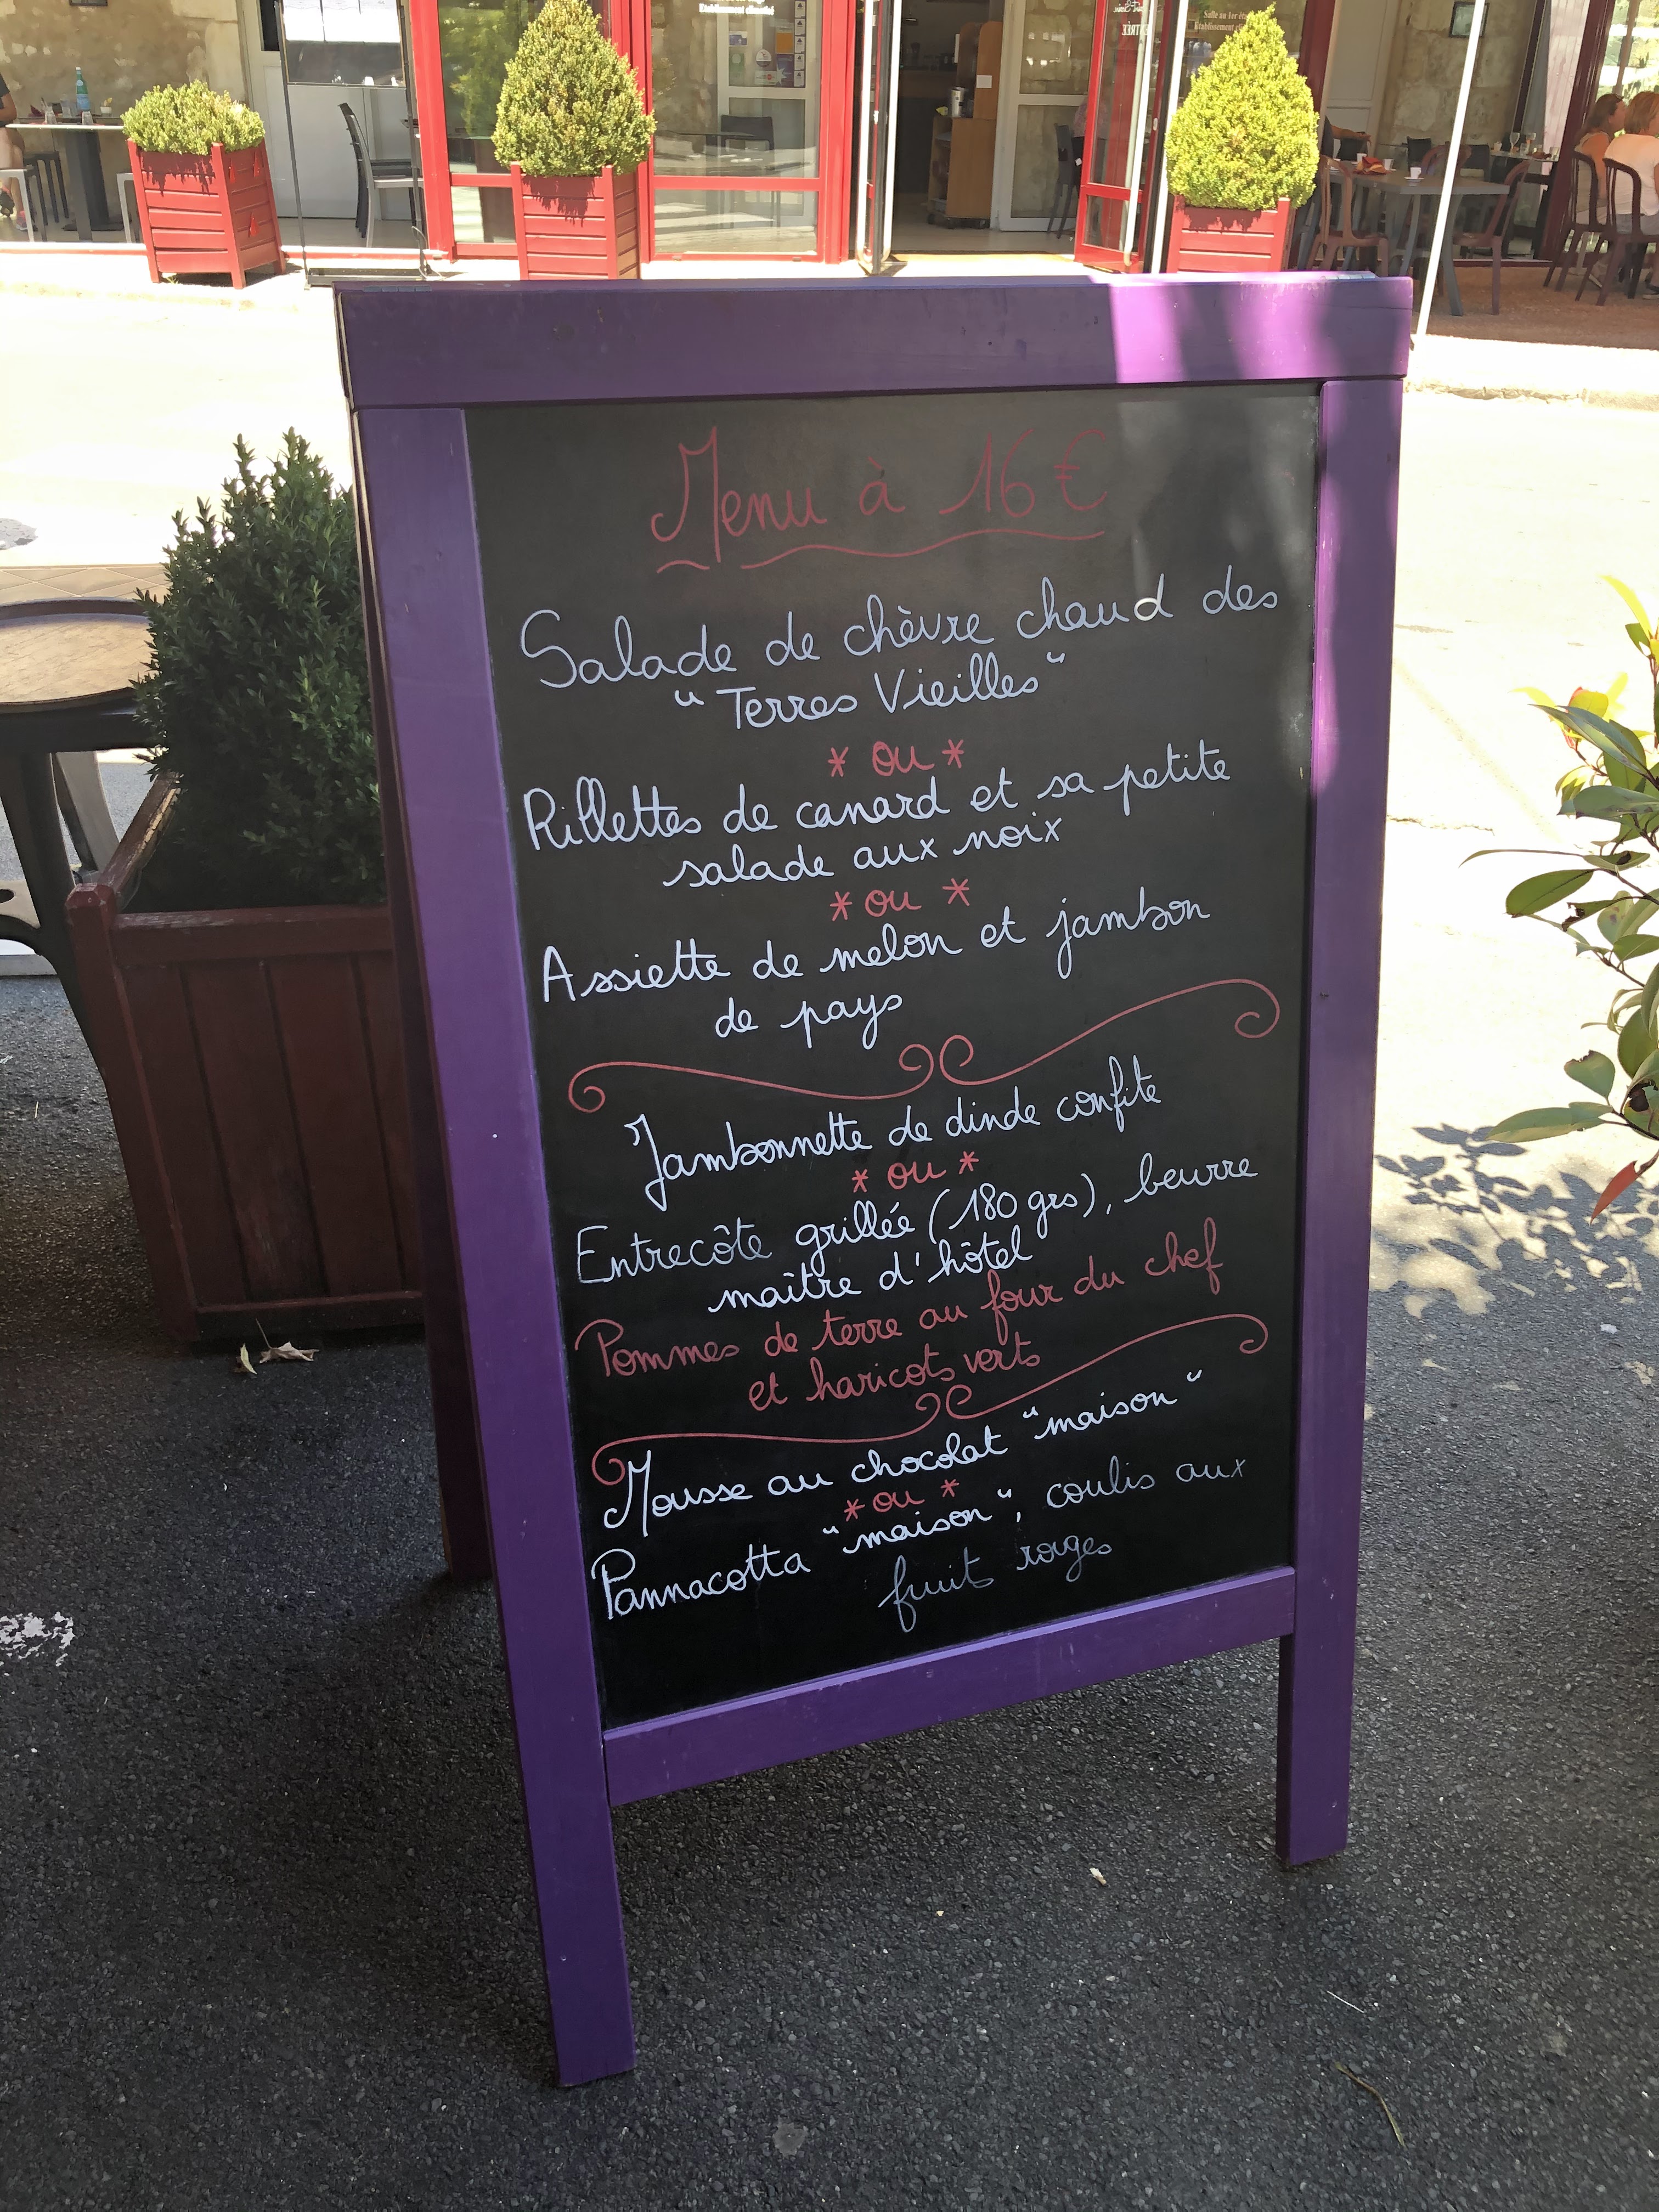 Etablissement climatisé
Salle au 1er étage
ENTRÉE
Menu à 16 €
Salade de chèvre chaud des
"Terres Vieilles"
* ou *
Rillettes de canard et sa petite
salade aux noix
* ou *
Assiette de melon et jambon
de pays
Jambonnette de dinde confite
* ou *
Entrecôte grillée (180 grs), beurre
maître d'hôtel
Pommes de terre au four du chef
et haricots verts
Mousse au chocolat "maison"
* ou *
Pannacotta "maison", coulis aux
fruits rouges